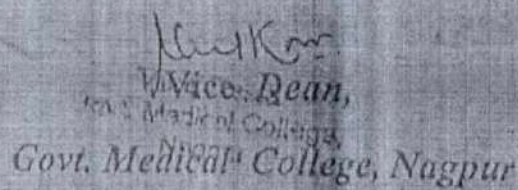 Vice Dean,
Medical College,
Govt. Medical College, Nagpur